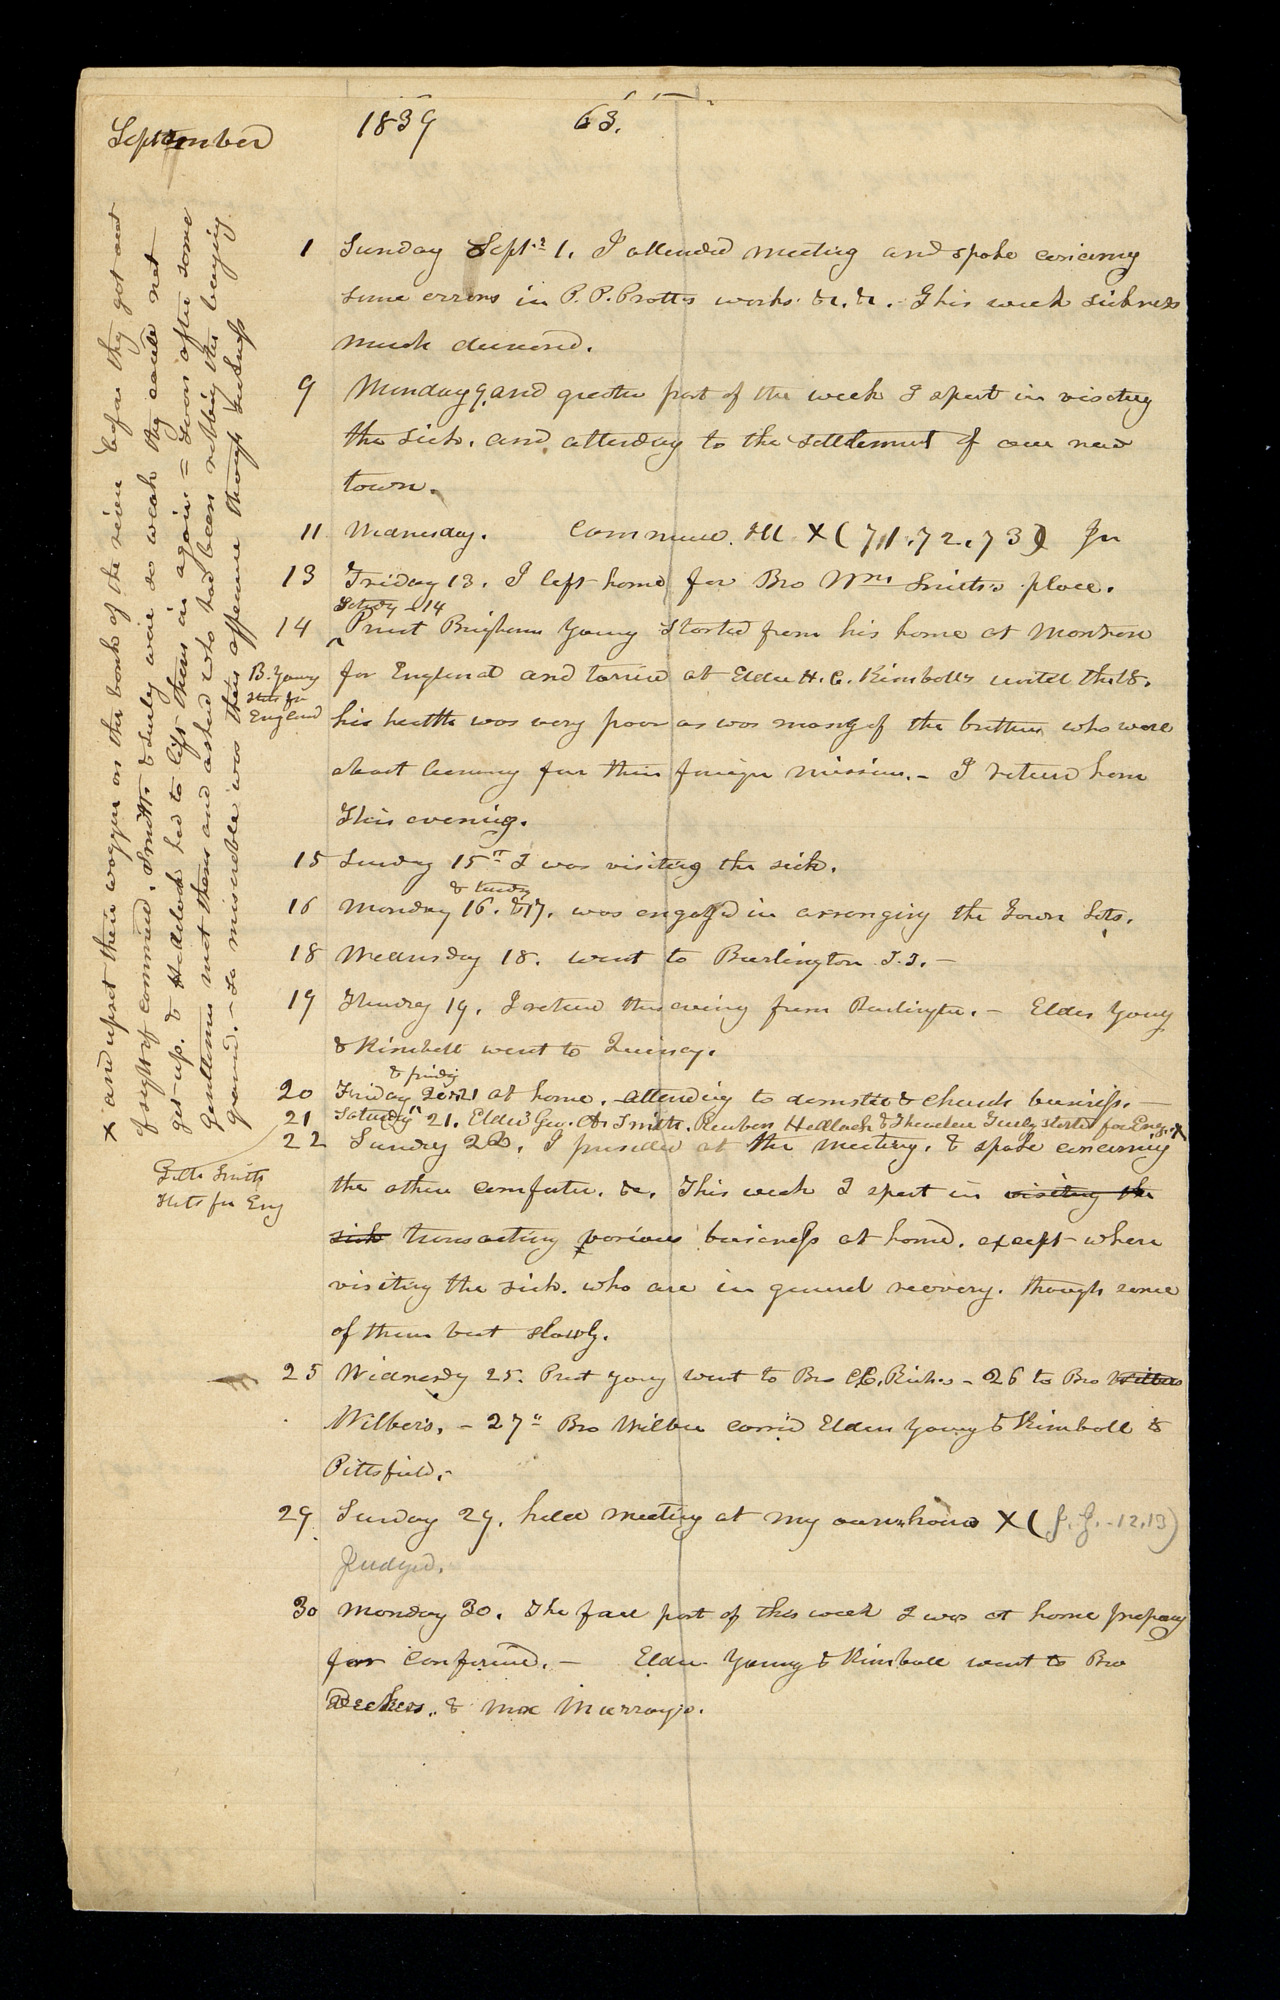 September 1839 63.
1 Sunday Sept.r 1. I attended meeting and spoke concerning
some errors in P. P. Pratts works. &c. &c. This week sickness
much decreased.
9 Monday 9. and greater part of the week I spent in visiting
the sick. and attending to the settlement of our new
town.
11 Wednesday. Commence. X (711.72.73)
13 Friday 13. I left home for Bro Wm Smith's place.
Saturdy 14
14 Prest Brigham Young started from his home at Montrose
B. Young
Starts for
England
for England and tarried at Elder H. C. Kimballs until the 18.
his health was very poor as was many of the brethren who were
about leaving for their foreign mission.- I return home
This evening.
15 Sunday 15th I was visiting the sick.
& tuesdy
16 Monday 16. & 17. was engaged in arranging the Town Lots.
18 Wednesday 18. went to Burlington I.T. -
19 Thursday 19. I return this evening from Burlington. - Elder Young
& Kimball went to Quincy.
& fridy
20 Friday 20 at home. attending to domestic & Church business. -
21 Saturday 21. Elders Geo. A. Smith. Reuben Hedlock & Theodore Turley started for Eng. X
22 Sunday 22. I presided at the meeting. & spoke concerning
the other comforter. &c. This week I spent in visiting the
sick transacting various business at home. except when
visiting the sick. who are in general recovery. though some
of them but slowly.
25 Wednesdy 25. Prest Young went to Bro C. C. Rich's - 26 to Bro Wilbers
Wilber's. - 27" Bro Wilber carrid Elders Young & Kimball to
Pittsfield.-
29 Sunday 29. held meeting at my own house X (J. J. -12.13)
Judged.
30 Monday 30. The fore part of this week I was at home preparing
for conference. - Elders Young & Kimball went to Bro
Deckers.. & Murray's.
Starts for Eng
X and upset their waggon on the bank of the river before they got out
of sight of commerce. Smith & Turley were so weak they could not
get up. & Hedlock had to lift them in again = Soon after some
Gentlemen met them and asked who had been robbing the burying
ground. - So miserable was their appearance through sickness